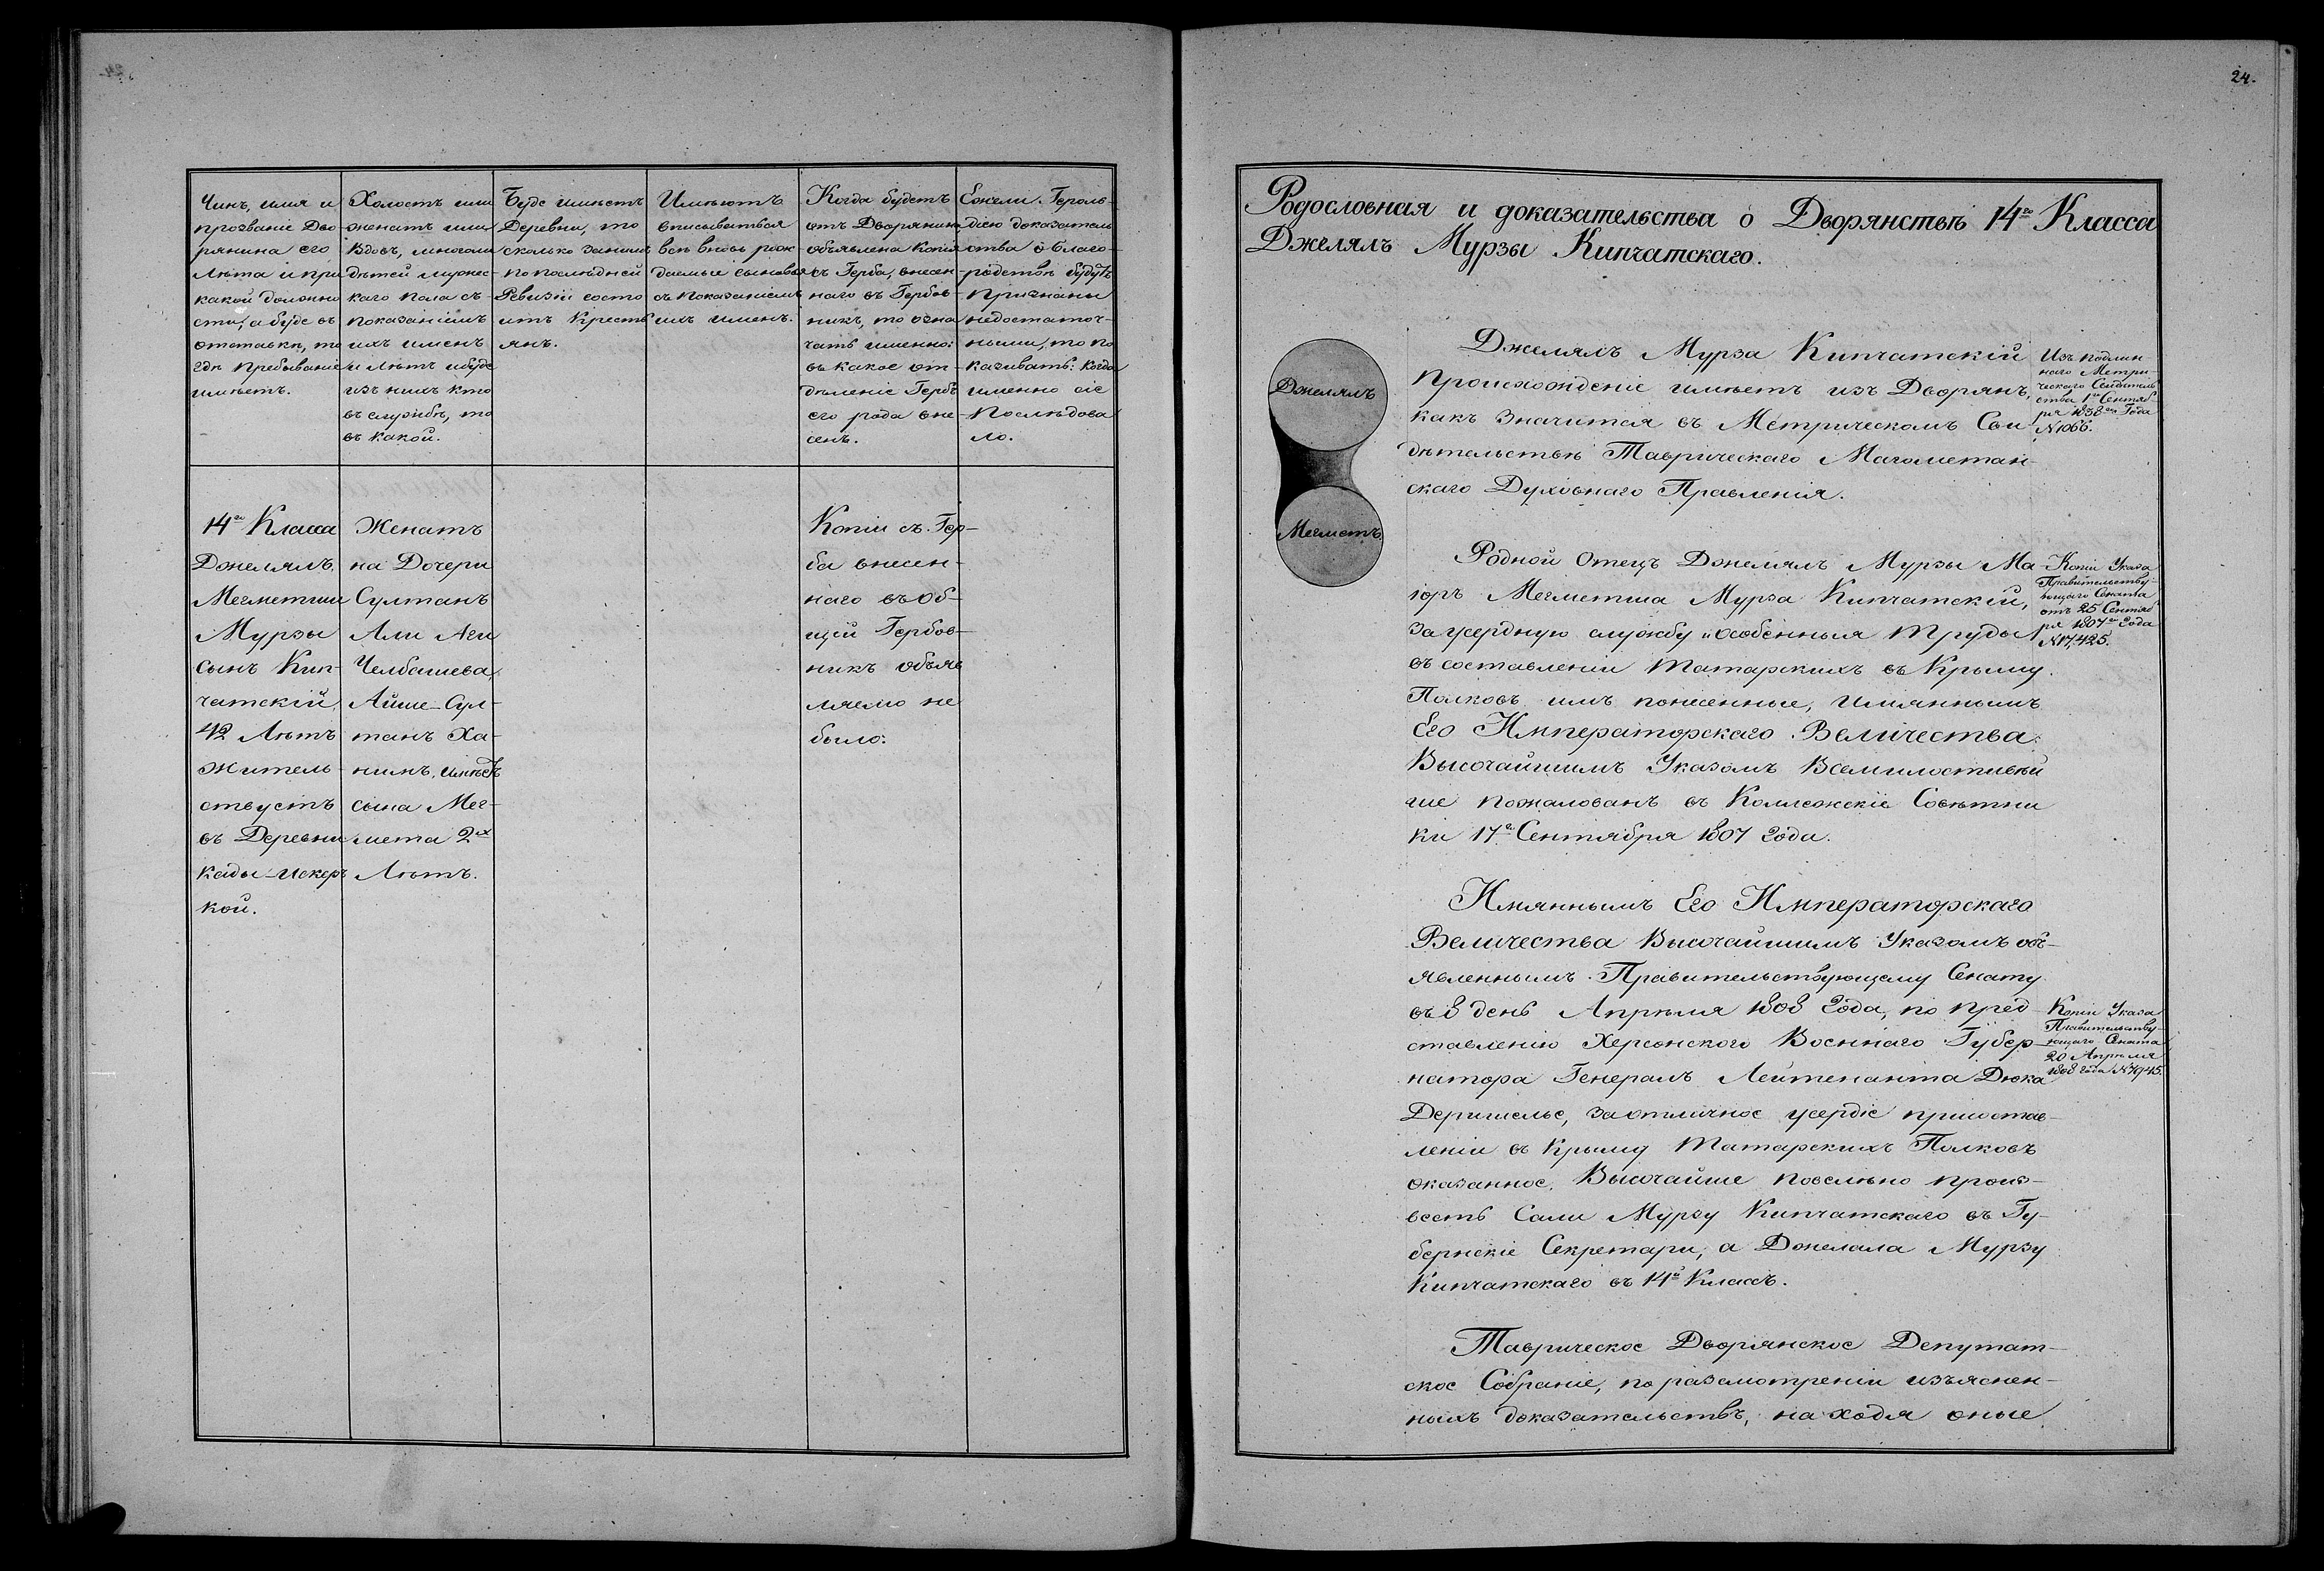 24.
Чинъ, имя и
прозваніе Дво
рянина его
Лѣта и при
какой должно
сти, а буде въ
отставкѣ, то
гдѣ пребываніе
имѣетъ.
Холостъ или
женатъ или
Вдовъ, многоли
дѣтей мужес-
каго пола съ
показаніемъ
ихъ именъ
и лѣтъ и буде
изъ нихъ кто
въ службѣ, то
въ какой.
Буде имѣетъ
Деревни, то
сколько за нимъ
по послѣдней
Ревизіи состо
итъ Кресть
янъ.
Имѣютъ
вписываться
всѣ вновь рож
даемые сыновья
съ показаніемъ
ихъ именъ.
Когда будетъ
отъ Дворянина
объявлена Копія
съ Герба, внесен-
наго въ Гербов-
никъ, то озна
чать именно:
въ какое от-
дѣленіе Гербъ
его рода вне-
сенъ.
Ежели Героль-
діею доказатель
ства о благо-
родствѣ будутъ
признаны
недостаточ-
ными, то по
казывать: когда
именно сіе
послѣдова
ло.
14го Класса
Джелялъ
Мегметши
Мурзы
сынъ Кип-
чатскій,
42 Лѣтъ
житель-
ствуетъ
въ Деревни
Кады-Искер
кой.
Женатъ
на Дочери
Султанъ
Али Аги
Челбашева,
Айше-Сул-
танъ Ха-
нимъ, имѣетъ
сына Мег-
мета 2хъ
Лѣтъ.
Копіи съ Гер-
ба внесен-
наго въ Об-
щій Гербов-
никъ объяв
ляемо не
было.
Родословная и доказательства о Дворянствѣ 14го Класса
Джелялъ Мурзы Кипчатскаго.
Джелялъ
Мегметъ
Джелялъ Мурза Кипчатскій
происхожденіе имѣетъ изъ Дворянъ,
какъ значится въ Метрическомъ Сви
дѣтельствѣ Таврическаго Магометан-
скаго Духовнаго Правленія.
Изъ подлин
наго Метри-
ческаго Свидѣтель
ства 1го Сентяб
ря 1838го Года
№ 1066.
Родной Отецъ Джелялъ Мурзы Ма-
іоръ Мегметша Мурза Кипчатскій,
за усердную службу и особенныя труды
въ составленіи Татарскихъ въ Крыму
Полковъ имъ понесенные, имяннымъ
Его Императорскаго Величества
Высочайшимъ Указомъ Всемилостивѣй
ше пожалованъ въ Коллежскіе Совѣтни
ки 17го Сентября 1807 года.
Копіи Указа
Правительству-
ющаго Сената
отъ 25 Сентяб
ря 1807го года
№ 17,425.
Имяннымъ Его Императорскаго
Величества Высочайшимъ Указомъ объ-
явленнымъ Правительствующему Сенату
въ 8 день Апрѣля 1808 Года, по пред-
ставленію Херсонскаго Военнаго Губер-
натора Генералъ Лейтенанта Дюка
Деришелье, за отличное усердіе при состав-
леніи въ Крыму Татарскихъ Полковъ
оказанное, Высочайше повелѣно произ-
весть Сали Мурзу Кипчатскаго въ Гу-
бернскіе Секретари, а Джелала Мурзу
Кипчатскаго въ 14й Классъ.
Копіи Указа
Правительству-
ющаго Сената
20 Апрѣля
1808 года № 7945.
Таврическое Дворянское Депутат-
ское Собраніе, по разсмотреніи изъяснен-
ныхъ доказательствъ, находя оные